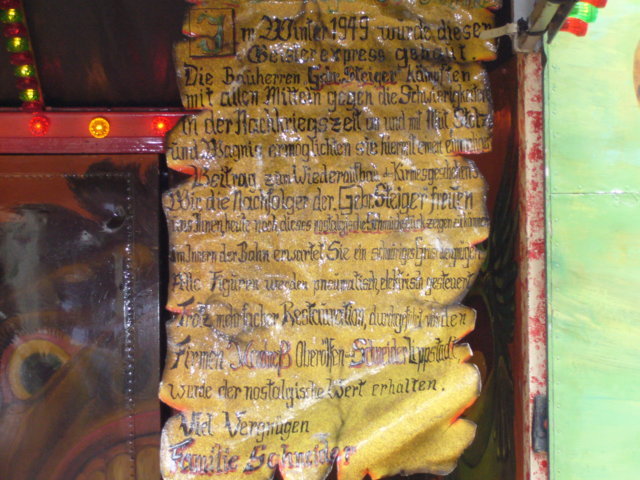 Im Winter 1949 wurde dieser
Geisterexpress gebaut.
Die Bauherren Gebr. Steiger kämpften
mit allen Mitteln gegen die Schwierigkeiten
in der Nachkriegszeit an und mit Mut Stolz
und Wagnis ermöglichten sie hiermit einen
Beitrag zum Wiederaufbau d. Kirmesgeschichte
Wir die Nachfolger der Gebr. Steiger freuen
uns Ihnen heute noch dieses nostalgische Schmuckstück zeigen zu können
Im Innern der Bahn erwartet Sie ein
Alle Figuren werden pneumatisch, elektrisch gesteuert.
Trotz mehrfacher Restauration, durchgeführt von den
Firmen Oberoffen-Schneider Lippstadt,
wurde der nostalgische Wert erhalten.
Viel Vergnügen
Familie Schneider